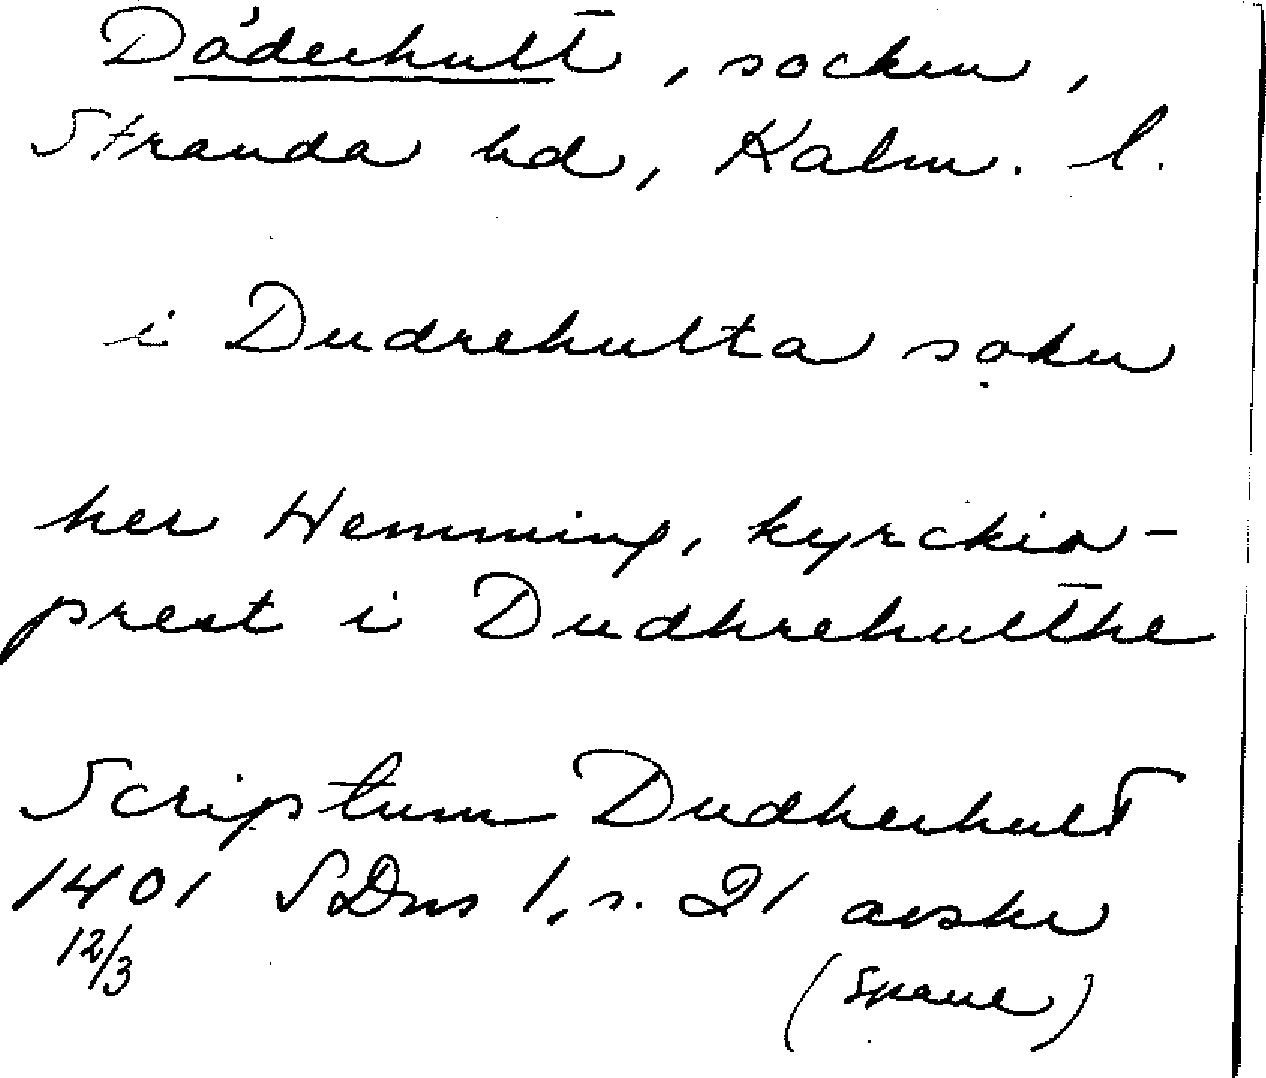 Döderhult, socken,
Stranda hd, Kalm. l.
i Dudrehulta sokn
her Hemming, kyrckio-
prest i Dudhrehulthe
Scriptum Dudherhult
1401 SDns 1, s. 21 avskr
12/3
(Spaur)